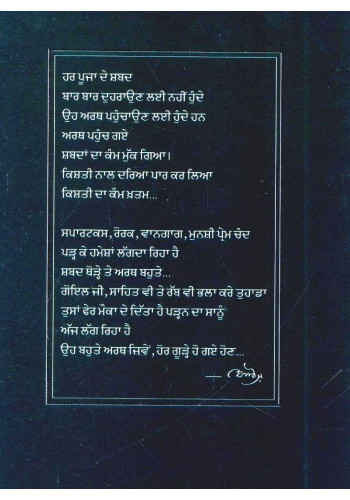 ਹਰ ਪੂਜਾ ਦੇ ਸ਼ਬਦ
ਬਾਰ ਬਾਰ ਦੁਹਰਾਉਣ ਲਈ ਨਹੀਂ ਹੁੰਦੇ
ਉਹ ਅਰਥ ਪਹੁੰਚਾਉਣ ਲਈ ਹੁੰਦੇ ਹਨ
ਅਰਥ ਪਹੁੰਚ ਗਏ
ਸ਼ਬਦਾਂ ਦਾ ਕੰਮ ਮੁੱਕ ਗਿਆ।
ਕਿਸ਼ਤੀ ਨਾਲ ਦਰਿਆ ਪਾਰ ਕਰ ਲਿਆ
ਕਿਸ਼ਤੀ ਦਾ ਕੰਮ ਖ਼ਤਮ...
ਸਪਾਰਟਕਸ, ਰੋਰਕ, ਵਾਨਗਾਗ, ਮੁਨਸ਼ੀ ਪ੍ਰੇਮ ਚੰਦ
ਪੜ੍ਹ ਕੇ ਹਮੇਸ਼ਾਂ ਲੱਗਦਾ ਰਿਹਾ ਹੈ
ਸ਼ਬਦ ਥੋੜ੍ਹੇ ਤੇ ਅਰਥ ਬਹੁਤੇ...
ਗੋਇਲ ਜੀ, ਸਾਹਿਤ ਵੀ ਤੇ ਰੱਬ ਵੀ ਭਲਾ ਕਰੇ ਤੁਹਾਡਾ
ਤੁਸਾਂ ਫੇਰ ਮੌਕਾ ਦੇ ਦਿੱਤਾ ਹੈ ਪੜ੍ਹਨ ਦਾ ਸਾਨੂੰ
ਅੱਜ ਲੱਗ ਰਿਹਾ ਹੈ
ਉਹ ਬਹੁਤੇ ਅਰਥ ਜਿਵੇਂ, ਹੋਰ ਗੂੜ੍ਹੇ ਹੋ ਗਏ ਹੋਣ...